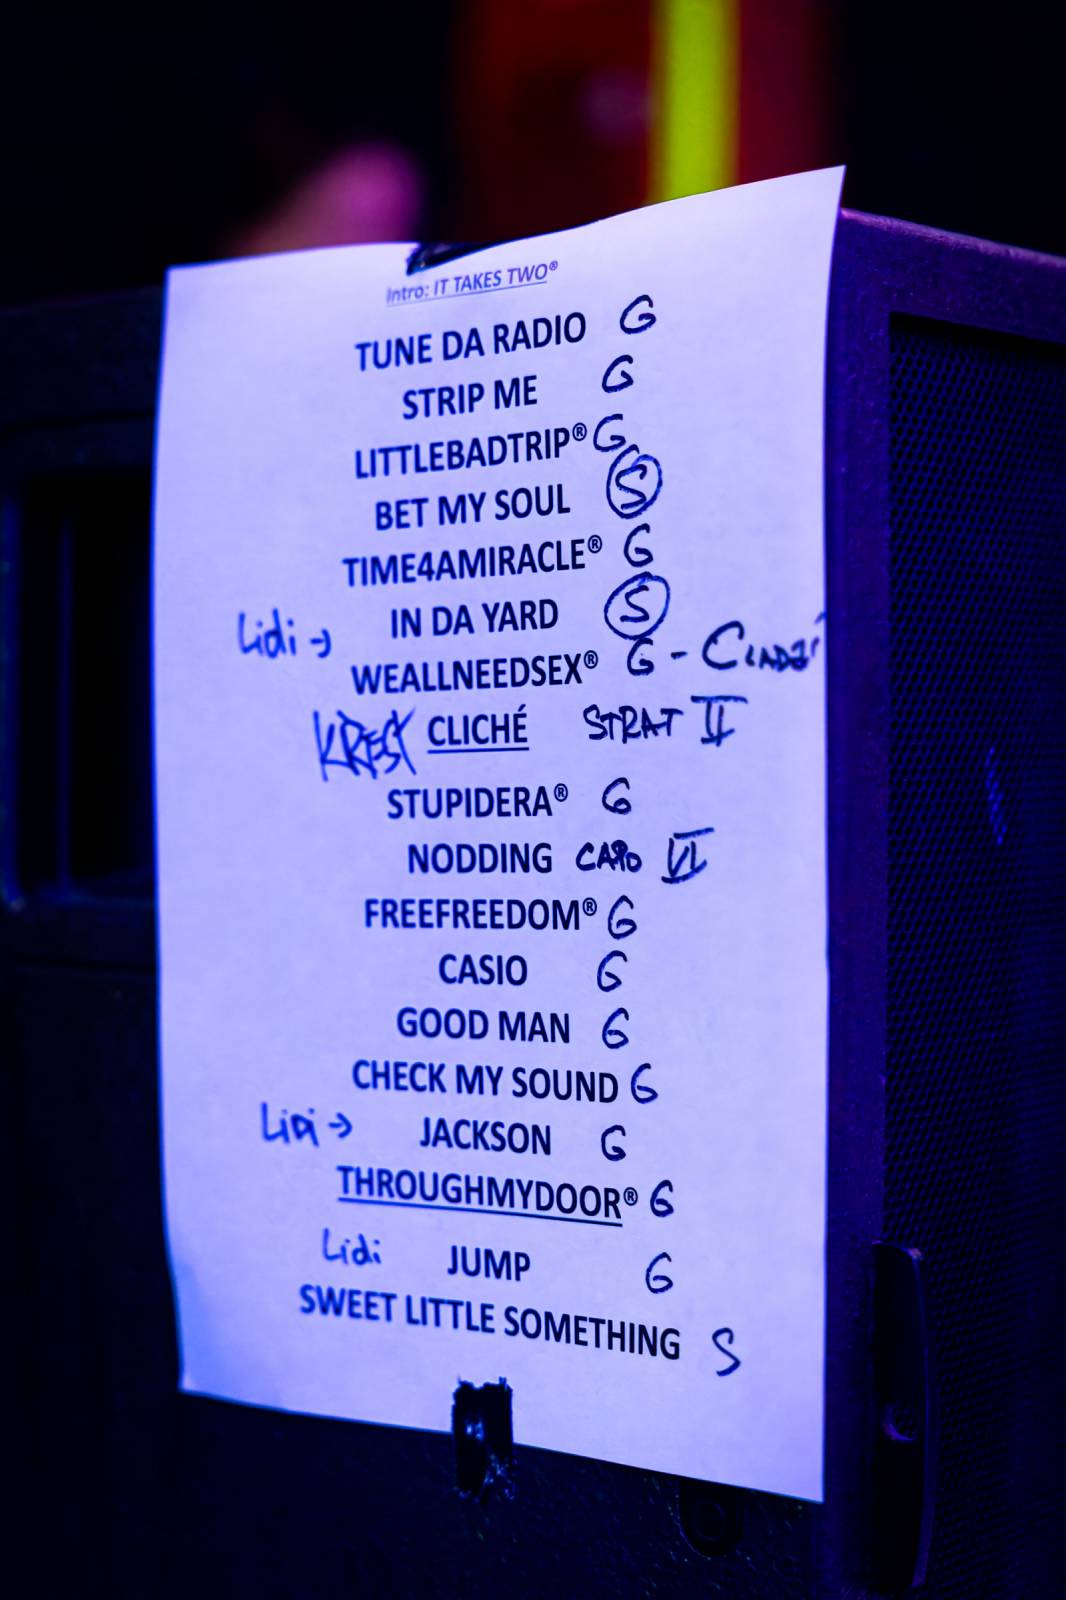 Intro: IT TAKES TWO®
TUNE DA RADIO G
STRIP ME G
LITTLEBADTRIP® G
BET MY SOUL S
TIME4AMIRACLE® G
IN DA YARD S
Lidi →
WEALLNEEDSEX® G - CLADZÍ
KREST CLICHÉ STRAT II
STUPIDERA® G
NODDING CAPO VI
FREEFREEDOM® G
CASIO G
GOOD MAN G
CHECK MY SOUND G
Lidi → JACKSON G
THROUGHMYDOOR® G
Lidi JUMP G
SWEET LITTLE SOMETHING S